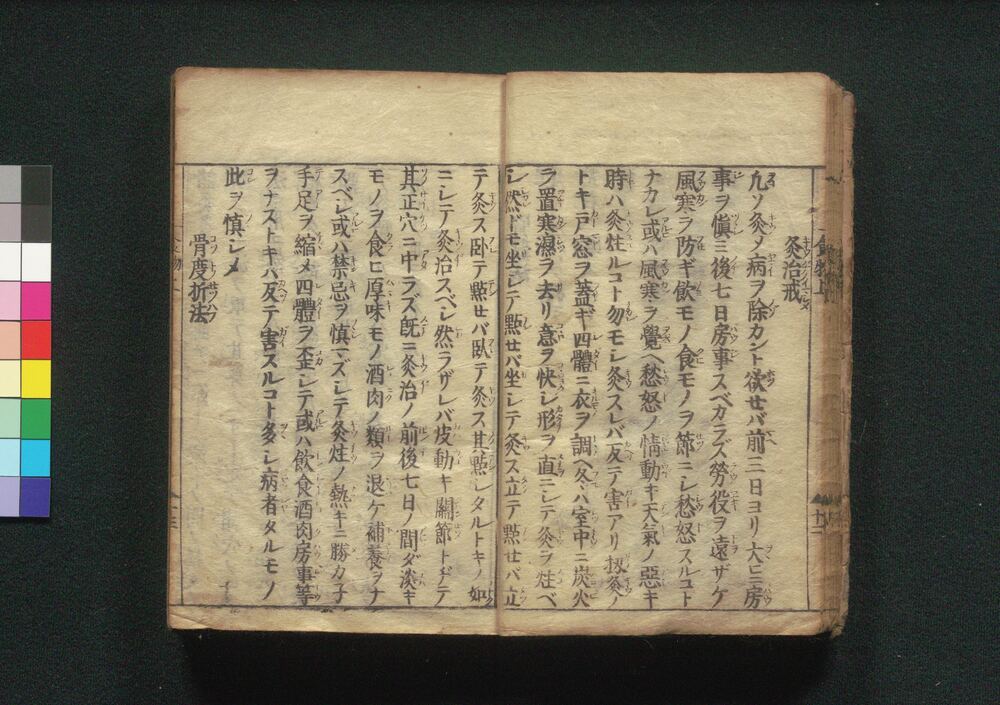 灸治戒
凡ソ灸ノ病ヲ除カント欲セバ前三日ヨリ大ニ房
事ヲ愼ミ後七日房事スベカラズ勞役ヲ遠ザケ
風寒ヲ防ギ飲モノ食モノヲ節ニシ愁怒スルコト
ナカレ或ハ風寒ヲ覺ヘ愁怒ノ情動キ天氣ノ惡キ
時ハ灸炷ルコト勿モシ灸スレバ反テ害アリ扨灸ノ
トキ戸窓ヲ蓋ギ四體ニ衣ヲ調ヘ冬ハ室中ニ炭火
ヲ置寒濕ヲ去リ意ヲ快シ形ヲ直ニシテ灸ヲ炷ベ
シ然ドモ坐シテ點せバ坐シテ灸ス立テ點せバ立
テ灸ス卧テ點せバ卧テ灸ス其點シタルトキノ如
ニシテ灸治スベシ然ラザレバ皮動キ關節トヂテ
其正穴ニ中ラズ既ニ灸治ノ前後七日ノ間ダ淡キ
モノヲ食ヒ厚味モノ酒肉ノ類ヲ退ケ補養ヲナ
スベシ或ハ禁忌ヲ慎マズシテ灸炷ノ熱キニ勝カ子
手足ヲ縮メ四體ヲ歪シテ或ハ飲食酒肉房事等
ヲナストキハ反テ害スルコト多シ病者タルモノ
此ヲ慎シメ
骨度折法